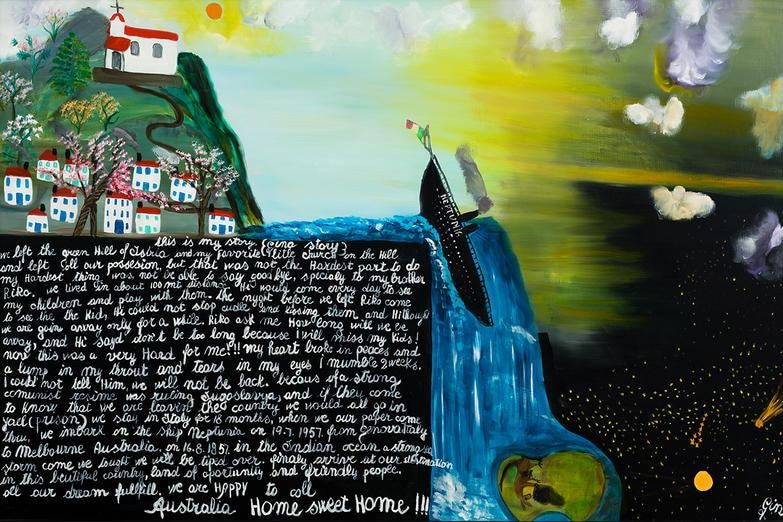 this is my story (Gina story)
we left the green Hill of Istria and my favorite little church on the Hill
and left oll our possesion, but that was not the Hardest part to do
my Hardest thing was not be able to say goodbye, specialy to my brother
Riko, we lived in about 100 mt distance, He would come every day to see
my children and play with them. the night before we left Riko come
to see the the kid, He could not stop cudle and kissing them, and I told Him
we are going away only for a while. Riko ask me How long will we be
away, and He sayd don't be too long because I will miss my kids!
now this was a very Hard for me!!! my heart broke in peaces and
a lump in my throut and tears in my eyes I mumble 2 weeks.
I could not tell Him, we will not be back. becaus of a strong
comunist regime was ruling Jugoslavya, and if they come
to know that we are leavin the country we would all go in
jail (prison) we stay in Italy for 18 months, when we our paper come
thru, we imbark on the ship Neptunia on 19.7.1957. from Genova Italy
to Melbourne Australia on 16.8.1957. in the Indian ocean a strong
storm come we tought we will be tiped over. finaly arrive at our destination
in this beutiful country, land of oportunity and friendly people.
oll our dream fullfill. we are HAPPY to coll
Australia Home sweet Home !!!
NEPTUNIA